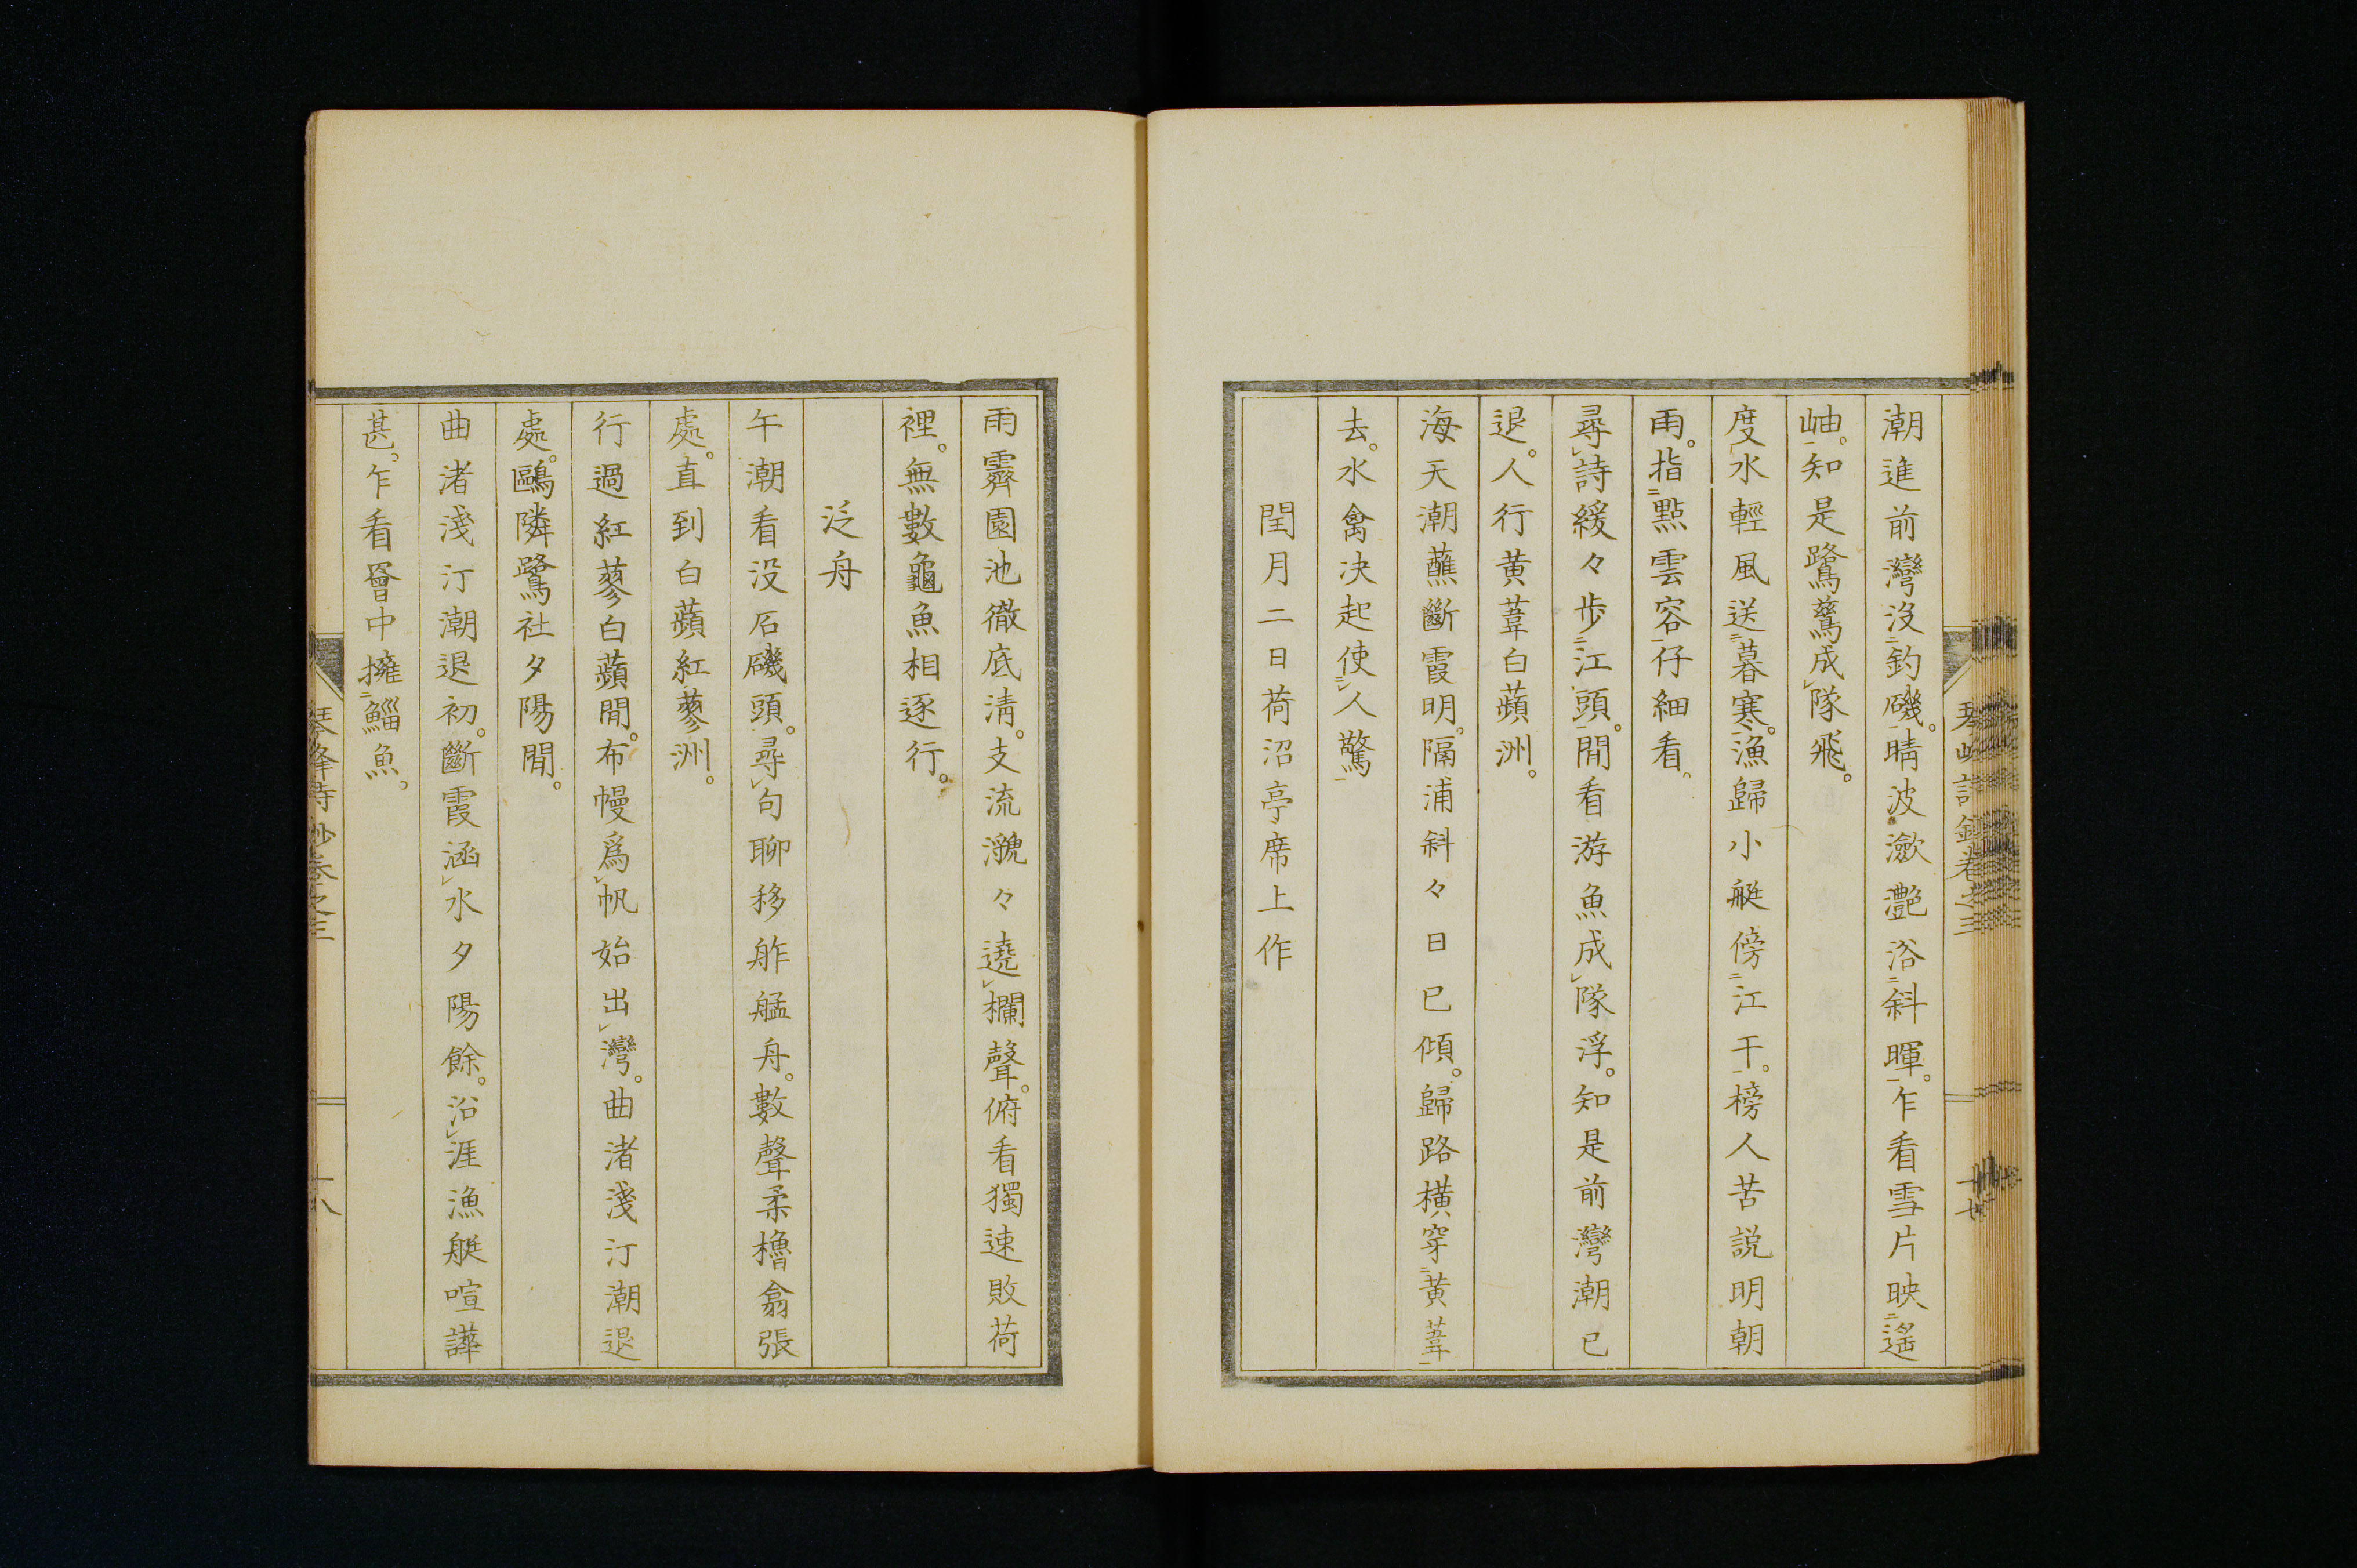 潮進前灣沒釣磯。晴波瀲灧浴斜暉。乍看雪片映遙
岫。知是鷺鷥成隊飛。
度水輕風送暮寒。漁歸小艇傍江干。榜人苦説明朝
雨。指點雲容仔細看。
尋詩緩々歩江頭。閒看游魚成隊浮。知是前灣潮已
退。人行黄葦白蘋洲。
海天潮蘸斷霞明。隔浦斜々日已傾。歸路橫穿黄葦
去。水禽决起使人驚
閏月二日荷沼亭席上作
雨霽園池徹底清。支流㶁々遶欄聲。俯看獨速敗荷
裡。無數龜魚相逐行。
泛舟
午潮看没石磯頭。尋句聊移舴艋舟。數聲柔櫓翕張
處。直到白蘋紅蓼洲。
行過紅蓼白蘋間。布幔爲帆始出灣。曲渚淺汀潮退
處。鷗隣鷺社夕陽間。
曲渚淺汀潮退初。斷霞涵水夕陽餘。沿涯漁艇喧譁
甚。乍看罾中擁鯔魚。
琴峰詩鈔卷之三
十八